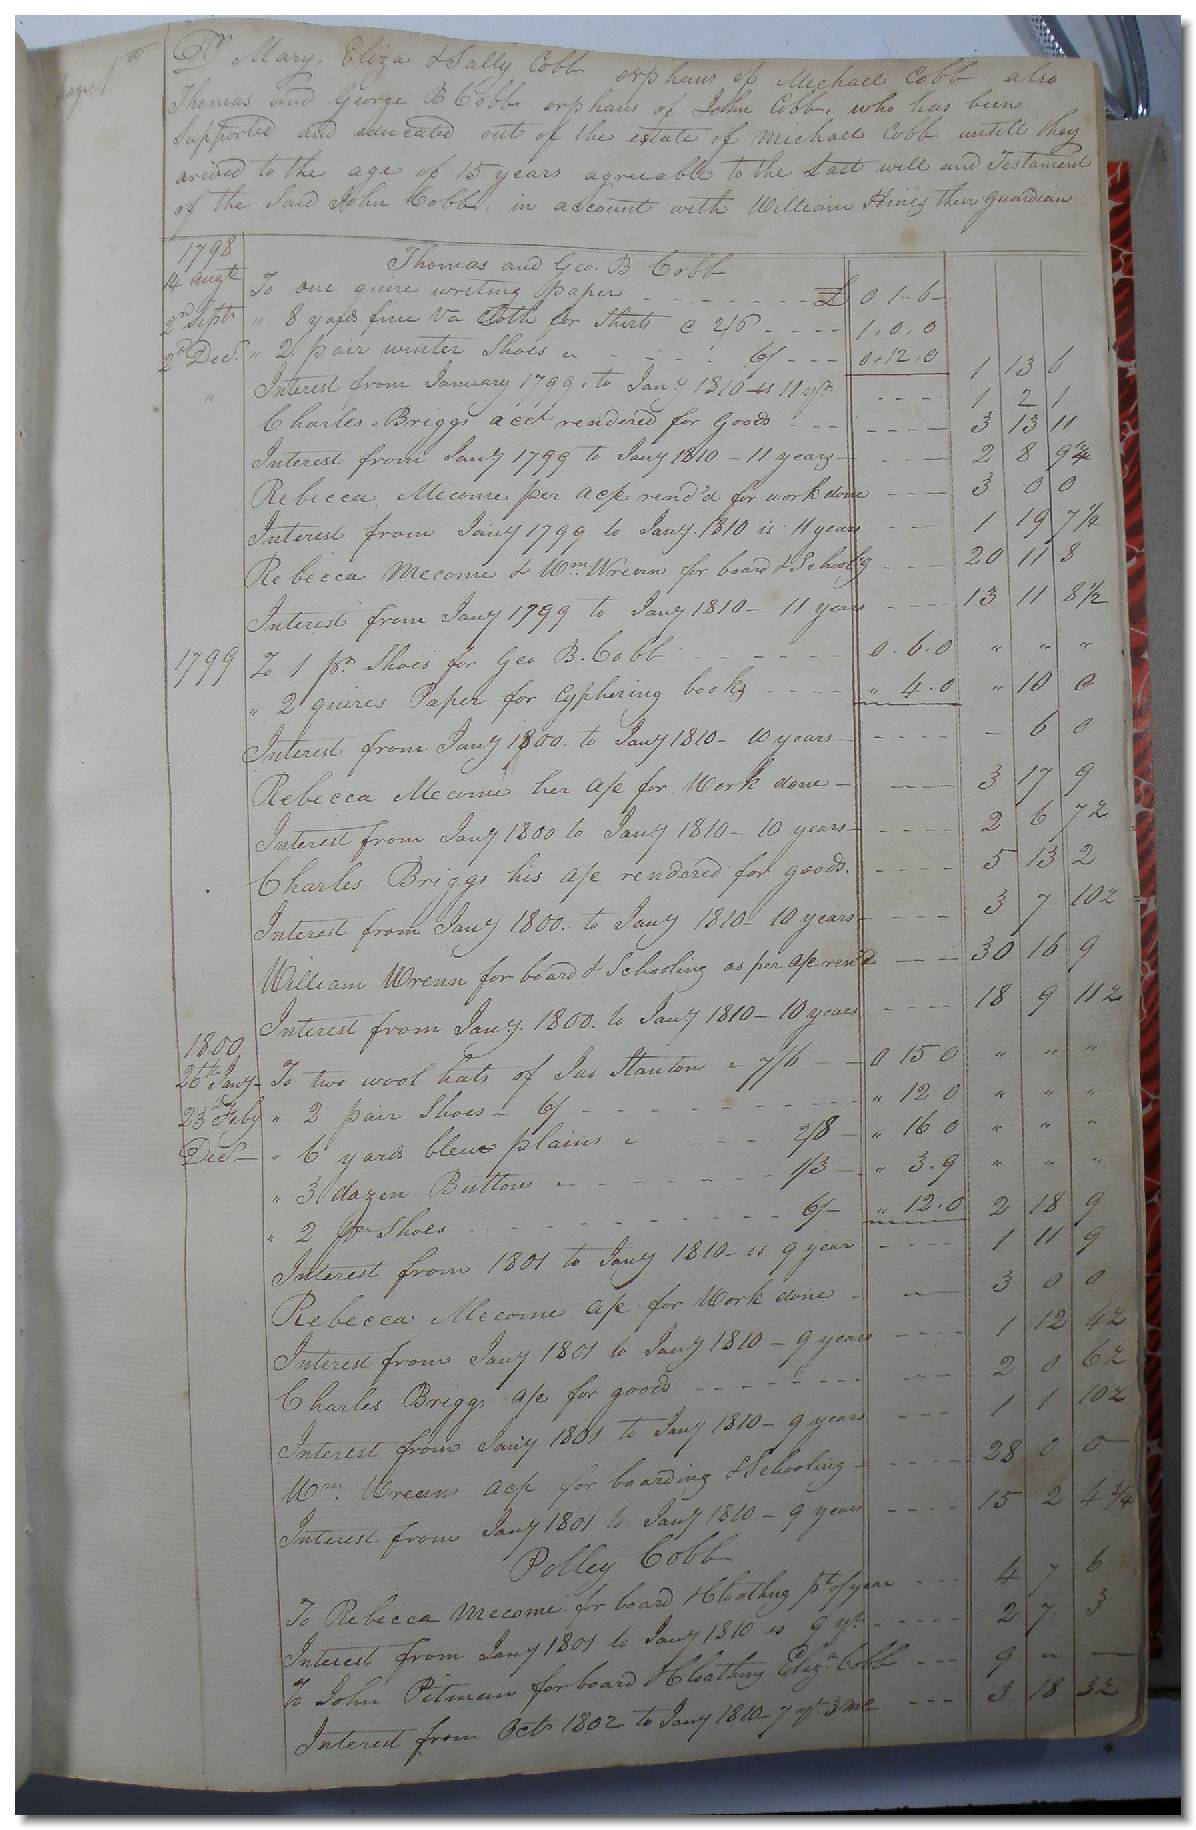 page 1st
Dr Mary, Eliza & Sally Cobb orphans of Michael Cobb also
Thomas and George B Cobb orphans of John Cobb. who has been
Supported and educated out of the estate of Michael Cobb untill they
arived to the age of 15 years agreeable to the Last will and Testament
of the Said John Cobb. in account with William Hines their Guardian
1798 Thomas and Geo. B Cobb
14 augt To one quire writing paper £ 0 1 - 6 -
2nd Sept " 8 yards fine Va Cloth for Shirts @ 2/6 1 . 0 . 0
2d Decr " 2 pair winter Shoes " 6/ 0 . 12 . 0 1 13 6
" Interest from January 1799. to Jany 1810 - is 11 yrs 1 2 1
Charles Briggs acct rendered for Goods 3 13 11
Interest from Jany 1799 to Jany 1810 - 11 years 2 8 9 3/4
Rebecca Mecome per a/c rend'd for work done 3 0 0
Interest from Jany 1799 to Jany. 1810 is 11 years 1 19 7 1/4
Rebecca Mecome & Wm. Wrenn for board & Schoolg 20 11 8
Interest from Jany 1799 to Jany 1810 - 11 years 13 11 8 1/2
1799 To 1 pr. Shoes for Geo B. Cobb 0 . 6 . 0 " " "
" 2 quires Paper for Cyphering books " 4 . 0 " 10 0
Interest from Jany 1800. to Jany 1810 - 10 years - 6 0
Rebecca Mecome her a/c for Work done - 3 17 9
Interest from Jany 1800 to Jany 1810 - 10 years - 2 6 7 1/2
Charles Briggs his a/c rendered for goods. 5 13 2
Interest from Jany 1800. to Jany 1810 - 10 years - 3 7 10 1/2
William Wrenn for board & Schooling as per a/c ren'd 30 16 9
Interest from Jany. 1800. to Jany 1810 - 10 years 18 9 11 1/2
1800
26th Jany - To two wool hats of Jas Stanton " 7/6 0 15 0 " " "
23d Feby " 2 pair Shoes - 6/ " 12 0 " " "
Decr - " 6 yards bleue plains " 2/8 - " 16 0 " " "
" 3 dozen Buttons " 1/3 - " 3 . 9 " " "
" 2 pr Shoes 6/- " 12 . 0 2 18 9
Interest from 1801 to Jany 1810 - is 9 year 1 11 9
Rebecca Mecome a/c for Work done - 3 0 0
Interest from Jany 1801 to Jany 1810 - 9 years 1 12 4 1/2
Charles Briggs a/c for goods 2 0 6 1/2
Interest from Jany 1801 to Jany 1810 - 9 years 1 1 10 1/2
Wm. Wrenns a/c for boarding & Schooling - 28 0 0
Interest from Jany 1801 to Jany 1810 - 9 years 15 2 4 3/4
Polley Cobb
To Rebecca Mecome for board & Cloathing pt of year 4 7 6
Interest from Jany 1801 to Jany 1810 is 9 yrs 2 7 3
To John Pitman for board & Cloathing Eliza Cobb 9 - -
Interest from Octr 1802 to Jany 1810 - 7 yrs 3 mo 3 18 3 1/2